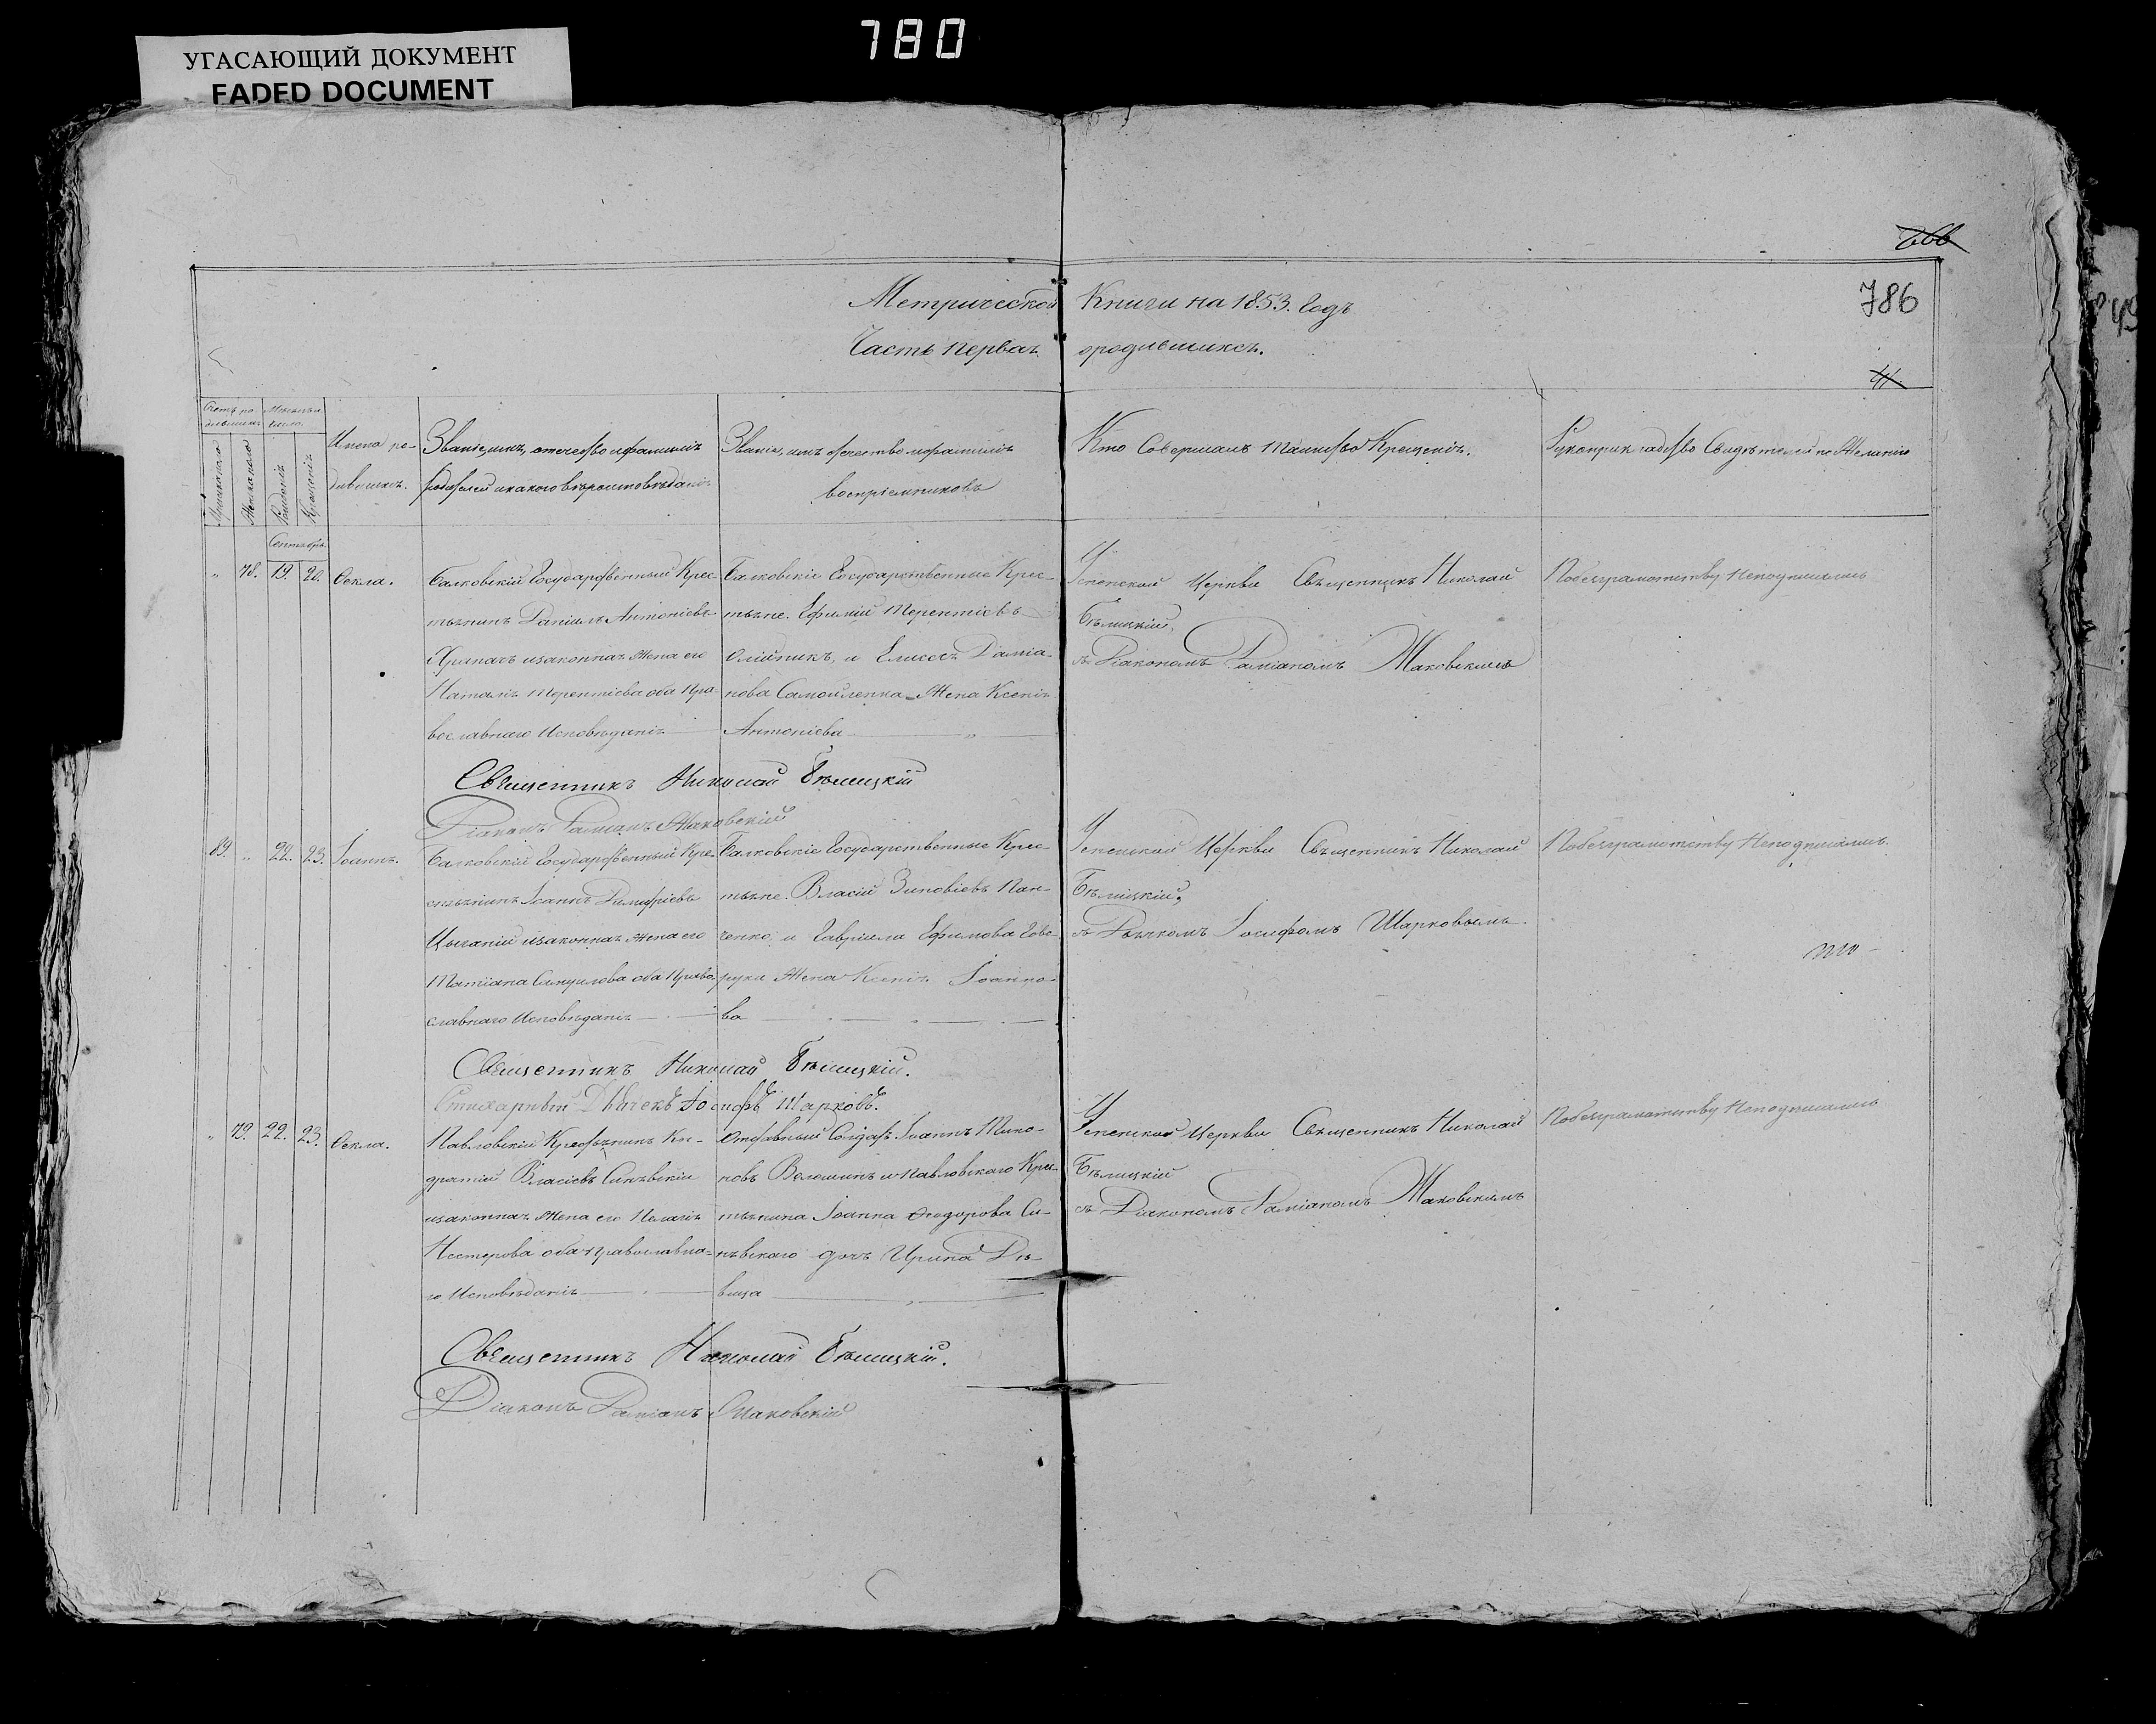 780
УГАСАЮЩИЙ ДОКУМЕНТ
FADED DOCUMENT
Метрической Книги на 1853. Годъ
786
Часть первая о родившихся.
Счетъ родившихся
Мѣсяцъ и число.
Мужескаго
Женскаго
Рожденія
Крещенія
Имена родившихся.
Званіе, имя, отечество и фамилія
родителей и какого вѣроисповѣданія
Званіе, имя отечество и фамилія
воспріемниковъ
Кто Совершалъ таинство Крещенія.
Рукоприкладство Свидѣтелей по Желанію
Сентябрь
„ 78. 19. 20. Ѳекла.
Балковскій Государственный Крес-
тьянинъ Даніилъ Антоніевъ
Хрипачъ и законная Жена его
Наталія Терентіева оба Пра-
вославнаго Исповѣданія
Балковскіе Государственные Крес-
тьяне. Ефимій Терентіевъ
Олійникъ, и Елисея Даміа-
нова Самойленка Жена Ксенія
Антоніева
Успенской Церкви Священникъ Николай
Бѣлицкій,
съ Діакономъ Даміаномъ Маковскимъ
По безграмотству Неподписались
Священникъ Николай Бѣлицкій
Діаконъ Даміанъ Маковскій
89. „ 22. 23. Іоаннъ.
Балковскій Государственный Кре-
стьянинъ Іоаннъ Димитріевъ
Цыганій и законная Жена его
Татіана Самуилова оба Право-
славнаго Исповѣданія
Балковскіе Государственные Крес-
тьяне. Власій Зиновіевъ Пан-
ченко, и Гавріила Ефимова Гово-
рухи Жена Ксенія Іоанно-
ва
Успенской Церкви Священникъ Николай
Бѣлицкій,
съ Дьячкомъ Іосифомъ Шарковымъ.
По безграмотству Неподписались.
Священникъ Николай Бѣлицкій.
Стихарный Дьячекъ Іосифъ Шарковъ.
„ 79. 22. 23. Ѳекла.
Павловскій Крестьянинъ Кон-
дратій Власіевъ Синѣвскій
и законная Жена его Пелагія
Нестерова оба Православна-
го Исповѣданія
Отставный Солдатъ Іоаннъ Тихо-
новъ Волошинъ и Павловскаго Крес-
тьянина Іоанна Ѳеодорова Си-
нѣвскаго дочь Ирина Дѣ-
вица
Успенской Церкви Священникъ Николай
Бѣлицкій
съ Діакономъ Даміаномъ Маковскимъ
По безграмотству Неподписались
Священникъ Николай Бѣлицкій.
Діаконъ Даміанъ Маковскій